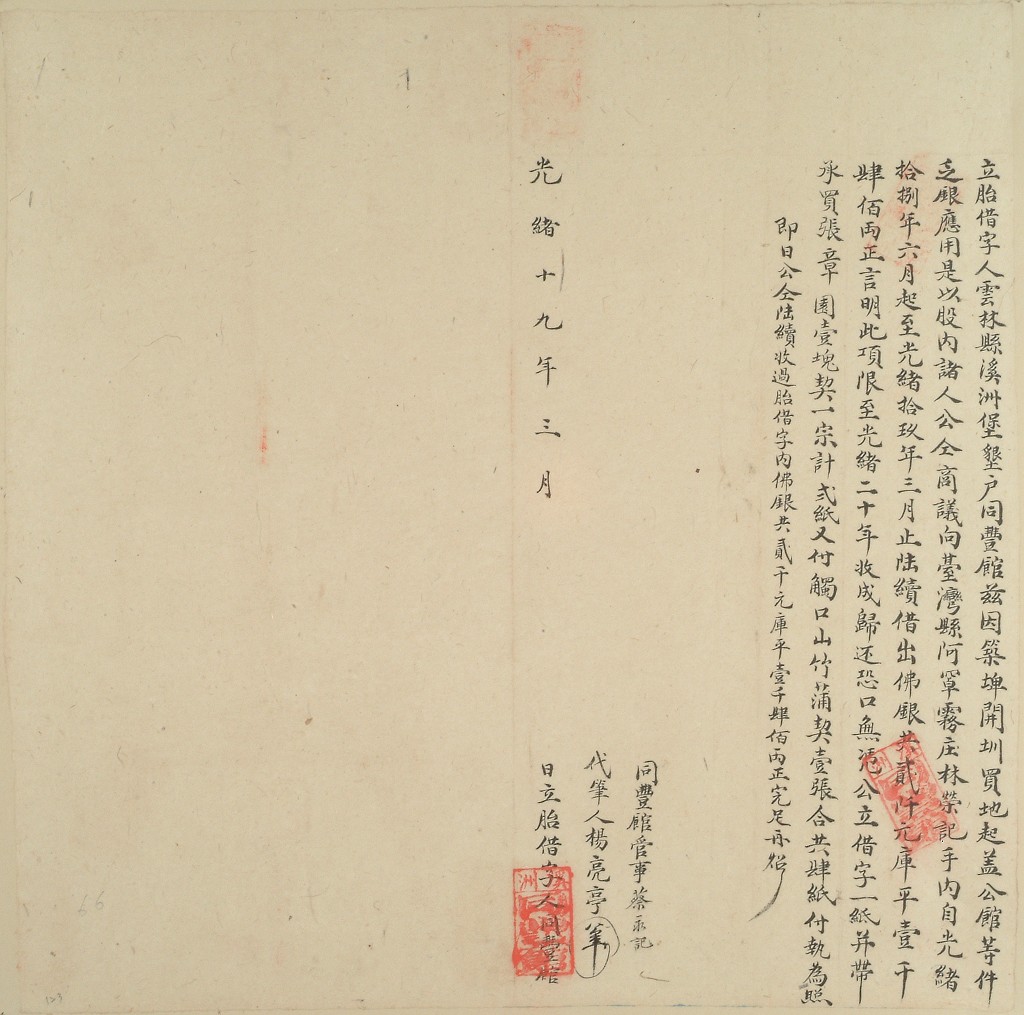 立胎借字人雲林縣溪洲堡墾户同豐館茲因築埤開圳買地起盖公館等件
乏銀應用是以股内諸人公仝商議向臺灣縣阿罩霧庄林榮記手内自光緒
拾捌年六月起至光緒拾玖年三月止陸續借出佛銀共貳仟元庫平壹千
肆佰両正言明此項限至光緒二十年收成歸还恐口無憑公立借字一紙并帶
承買張章園壹塊契一宗計弍紙又付觸口山竹蒲契壹張合共肆紙付執為照
即日公仝陸續收過胎借字内佛銀共貳千元庫平壹千肆佰両正完足再炤
同豐館管事蔡承記
代筆人楊亮亭
日立胎借字人同豐館
光緒十九年三月
洲